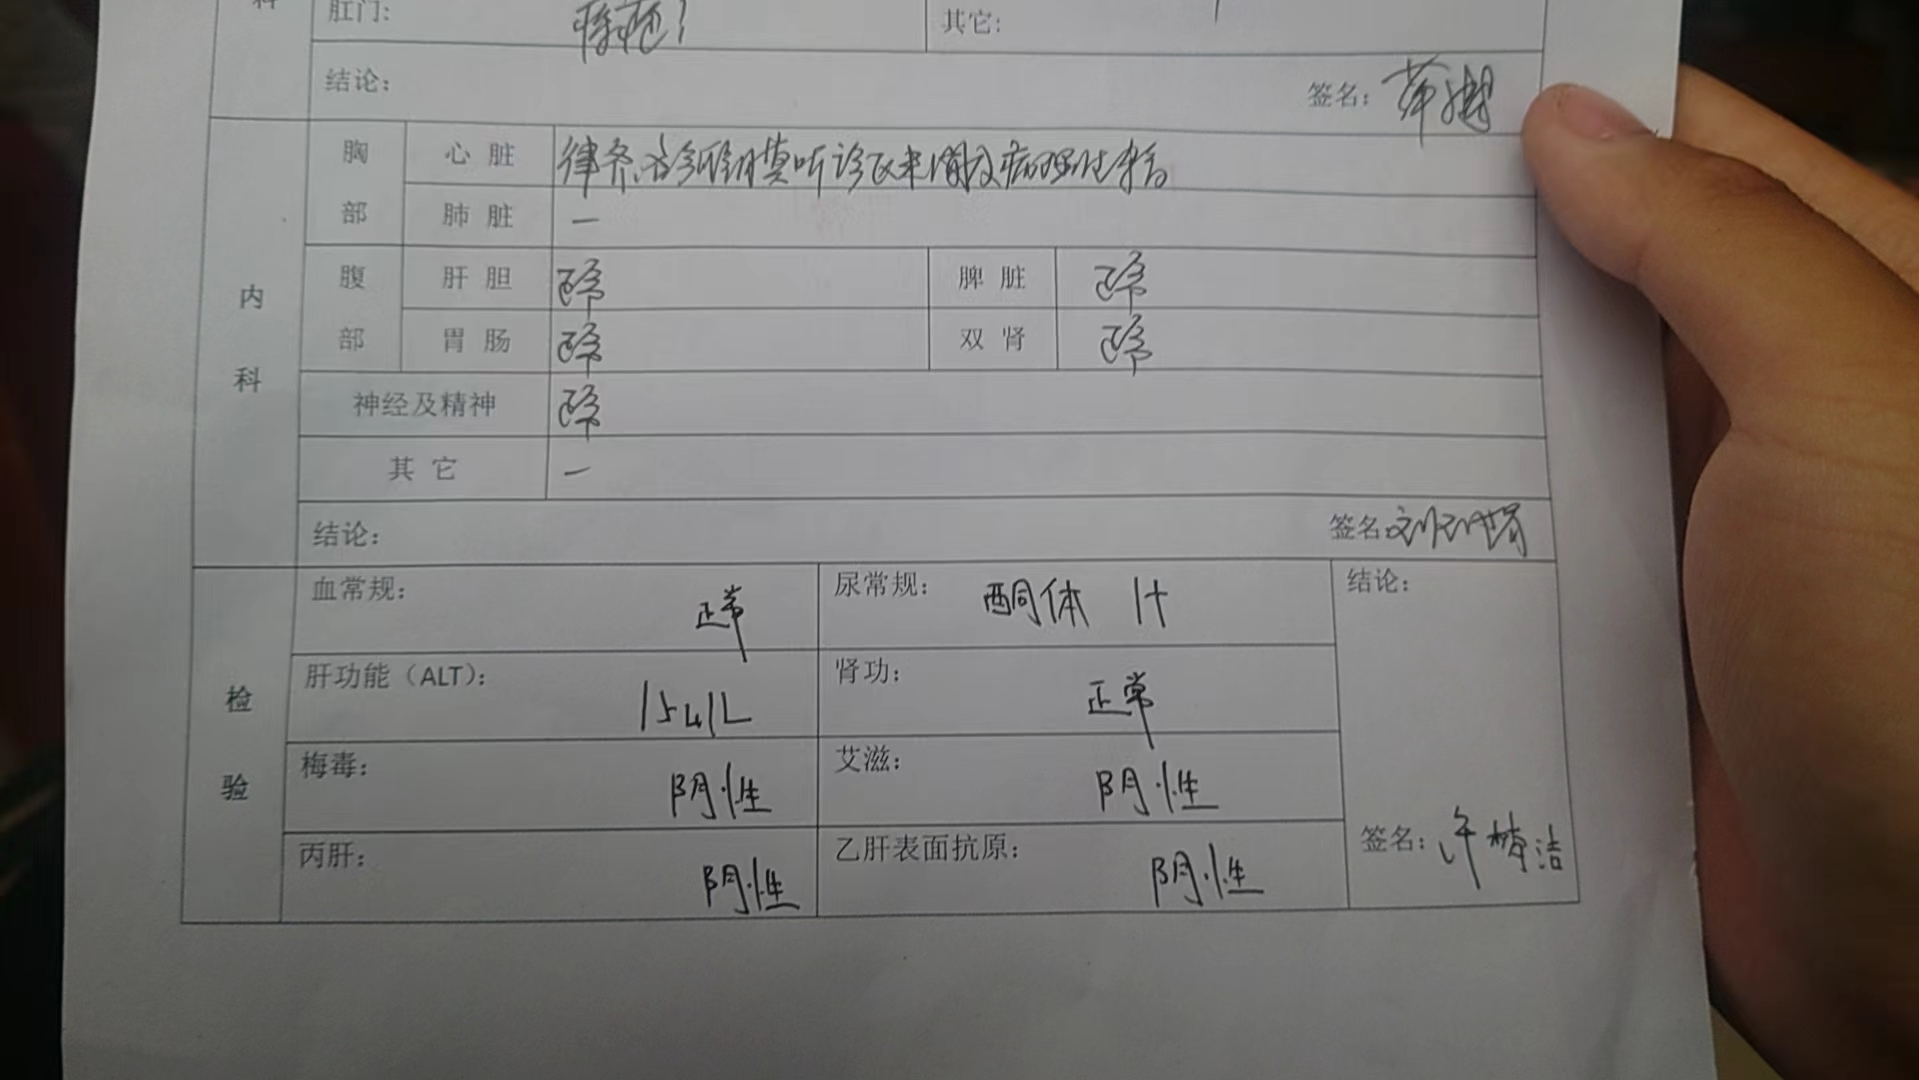 科
肛门: 其它:
结论: 签名:
胸 心 脏 律齐,各瓣膜听诊区未闻及病理性杂音
部 肺 脏 一
腹 肝 胆 正常 脾 脏 正常
内
部 胃 肠 正常 双 肾 正常
科
神经及精神 正常
其 它 一
结论: 签名:
血常规: 正常 尿常规: 酮体 1+ 结论:
检 肝功能（ALT）: 15u/L 肾功: 正常
验 梅毒: 阴性 艾滋: 阴性
丙肝: 阴性 乙肝表面抗原: 阴性 签名: 许梦洁